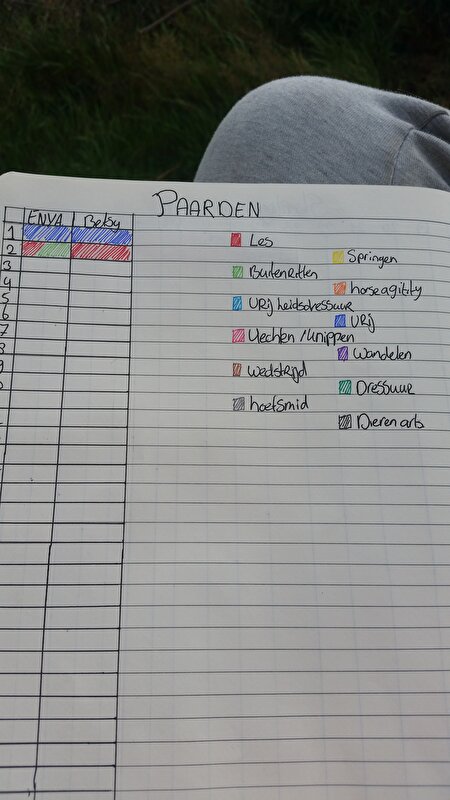 PAARDEN
ENYA Betsy
1
2
3
4
5
6
7
8
9
Les
Springen
Buitenritten
horseagility
Vrijheidsdressuur
Vrij
Vlechten / knippen
Wandelen
wedstrijd
Dressuur
hoefsmid
Dierenarts